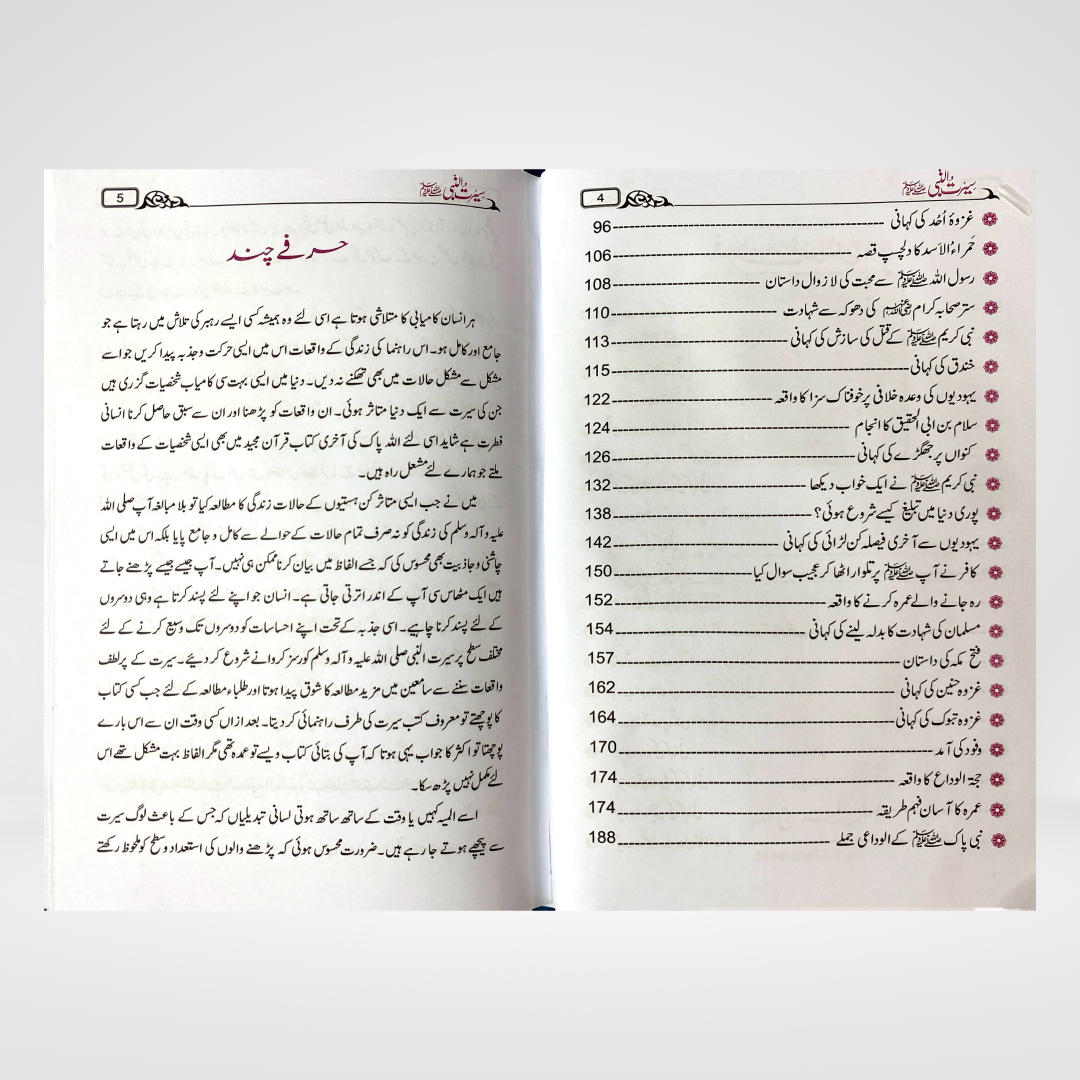 سیرت النبی ﷺ 4
غزوۂ اُحد کی کہانی 96
حَمراءُ الاَسد کا دلچسپ قصہ 106
رسول اللہ ﷺ سے محبت کی لازوال داستان 108
ستر صحابہ کرام رضی اللہ عنہم کی دھوکہ سے شہادت 110
نبی کریم ﷺ کے قتل کی سازش کی کہانی 113
خندق کی کہانی 115
یہودیوں کی وعدہ خلافی پر خوفناک سزا کا واقعہ 122
سلام بن ابی الحقیق کا انجام 124
کنواں پر جھگڑے کی کہانی 126
نبی کریم ﷺ نے ایک خواب دیکھا 132
پوری دنیا میں تبلیغ کیسے شروع ہوئی؟ 138
یہودیوں سے آخری فیصلہ کن لڑائی کی کہانی 142
کافر نے آپ ﷺ پر تلوار اٹھا کر عجیب سوال کیا 150
رہ جانے والے عمرہ کرنے کا واقعہ 152
مسلمان کی شہادت کا بدلہ لینے کی کہانی 154
فتح مکہ کی داستان 157
غزوہ حنین کی کہانی 162
غزوہ تبوک کی کہانی 164
وفود کی آمد 170
حجۃ الوداع کا واقعہ 174
عمرہ کا آسان فہم طریقہ 174
نبی پاک ﷺ کے الوداعی جملے 188
سیرت النبی ﷺ 5
حرفے چند
ہر انسان کامیابی کا متلاشی ہوتا ہے اسی لئے وہ ہمیشہ کسی ایسے رہبر کی تلاش میں رہتا ہے جو
جامع اور کامل ہو۔ اس راہنما کی زندگی کے واقعات اس میں ایسی حرکت و جذبہ پیدا کریں جو اسے
مشکل سے مشکل حالات میں بھی تھکنے نہ دیں۔ دنیا میں ایسی بہت سی کامیاب شخصیات گزری ہیں
جن کی سیرت سے ایک دنیا متاثر ہوئی۔ ان واقعات کو پڑھنا اور ان سے سبق حاصل کرنا انسانی
فطرت ہے شاید اسی لئے اللہ پاک کی آخری کتاب قرآن مجید میں بھی ایسی شخصیات کے واقعات
ملتے جو ہمارے لئے مشعل راہ ہیں۔
میں نے جب ایسی متاثر کن ہستیوں کے حالات زندگی کا مطالعہ کیا تو بلا مبالغہ آپ صلی اللہ
علیہ وآلہ وسلم کی زندگی کو نہ صرف تمام حالات کے حوالے سے کامل و جامع پایا بلکہ اس میں ایسی
چاشنی و جاذبیت بھی محسوس کی کہ جسے الفاظ میں بیان کرنا ممکن ہی نہیں۔ آپ جیسے جیسے پڑھتے جاتے
ہیں ایک مٹھاس سی آپ کے اندر اترتی جاتی ہے۔ انسان جو اپنے لئے پسند کرتا ہے وہی دوسروں
کے لئے پسند کرنا چاہیے۔ اسی جذبہ کے تحت اپنے احساسات کو دوسروں تک وسیع کرنے کے لئے
مختلف سطح پر سیرت النبی صلی اللہ علیہ وآلہ وسلم کورسز کروانے شروع کر دیئے۔ سیرت کے پرلطف
واقعات سننے سے سامعین میں مزید مطالعہ کا شوق پیدا ہوتا اور طلباء مطالعہ کے لئے جب کسی کتاب
کا پوچھتے تو معروف کتب سیرت کی طرف راہنمائی کر دیتا۔ بعد ازاں کسی وقت ان سے اس بارے
پوچھتا تو اکثر کا جواب یہی ہوتا کہ آپ کی بتائی کتاب ویسے تو عمدہ تھی مگر الفاظ بہت مشکل تھے اس
لئے مکمل نہیں پڑھ سکا۔
اسے المیہ کہیں یا وقت کے ساتھ ساتھ ہوتی لسانی تبدیلیاں کہ جس کے باعث لوگ سیرت
سے پیچھے ہوتے جا رہے ہیں۔ ضرورت محسوس ہوئی کہ پڑھنے والوں کی استعداد و سطح کو ملحوظ رکھتے